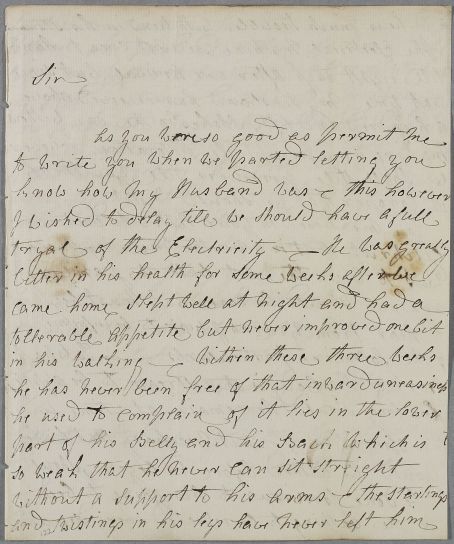 Sir
As you were so good as permit me
to write you when we parted letting you
know how my Husband was - this however
I wished to delay till we should have a full
tryal of the Electricity - He was greatly
better in his health for some weeks after we
came home slept well at night and had a
tollerable appetite but never improved one bit
in his walking - Within these three weeks
he has never been free of that inward uneasiness
he used to complain of it lies in the lower
part of his Belly and his Back which is
so weak that he never can sit streight
without a support to his arms - the startings
and twistings in his legs have never left him